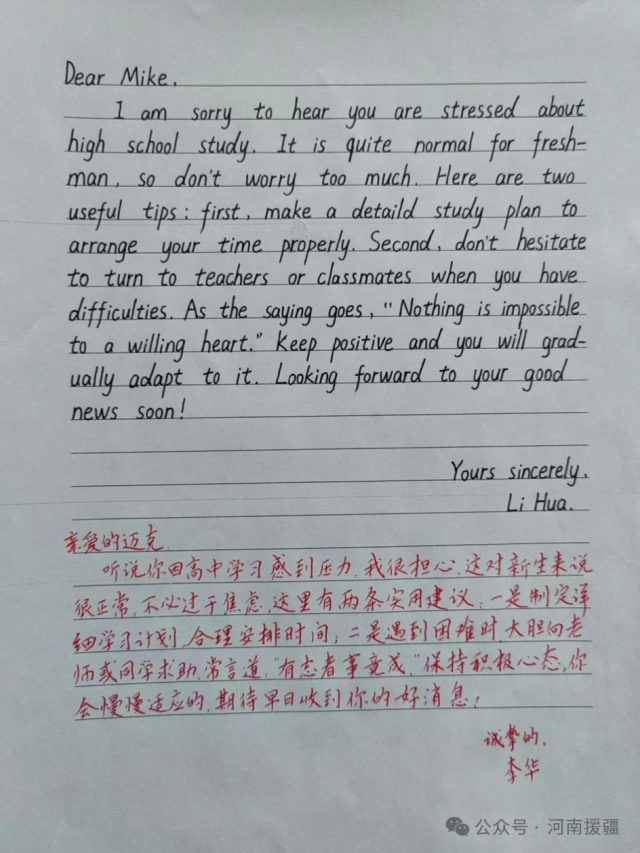 Dear Mike,
I am sorry to hear you are stressed about
high school study. It is quite normal for fresh-
man, so don't worry too much. Here are two
useful tips: first, make a detaild study plan to
arrange your time properly. Second, don't hesitate
to turn to teachers or classmates when you have
difficulties. As the saying goes, "Nothing is impossible
to a willing heart." Keep positive and you will grad-
ually adapt to it. Looking forward to your good
news soon!
Yours sincerely,
Li Hua.
亲爱的迈克,
听说你因高中学习感到压力,我很担心.这对新生来说
很正常,不必过于焦虑.这里有两条实用建议:一是制定详
细学习计划,合理安排时间;二是遇到困难时,大胆向老
师或同学求助.常言道,"有志者事竟成."保持积极心态,你
会慢慢适应的.期待早日收到你的好消息!
诚挚的,
李华
公众号·河南援疆